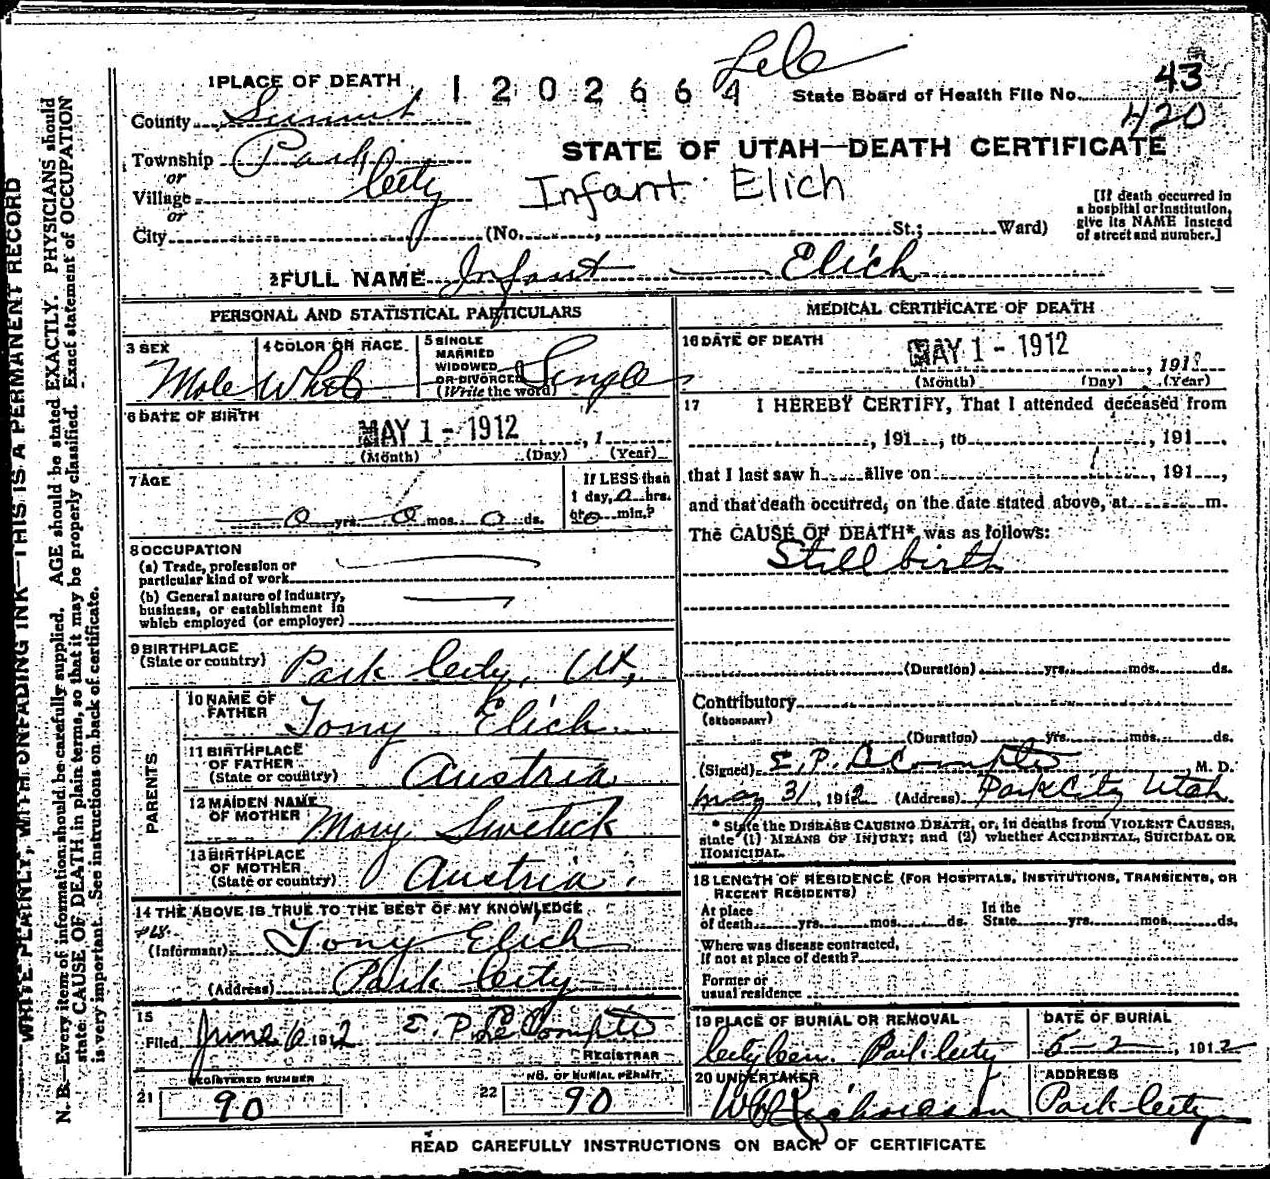 Lele
1 PLACE OF DEATH 1202664 State Board of Health File No. 43
420
County Summit
Township Park City
or
Village
or
City (No. , St.; Ward)
STATE OF UTAH—DEATH CERTIFICATE
Infant Elich
[If death occurred in a hospital or institution, give its NAME instead of street and number.]
2 FULL NAME Infant Elich
PERSONAL AND STATISTICAL PARTICULARS
3 SEX Male
4 COLOR OR RACE White
5 SINGLE MARRIED WIDOWED OR DIVORCED (Write the word) Single
6 DATE OF BIRTH
MAY 1 - 1912 , 1
(Month) (Day) (Year)
7 AGE
0 yrs. 0 mos. 0 ds.
If LESS than 1 day, 0 hrs. or 0 min.?
8 OCCUPATION
(a) Trade, profession or particular kind of work
(b) General nature of industry, business, or establishment in which employed (or employer)
9 BIRTHPLACE (State or country) Park City, Ut,
PARENTS
10 NAME OF FATHER Tony Elich
11 BIRTHPLACE OF FATHER (State or country) Austria
12 MAIDEN NAME OF MOTHER Mary Swetick
13 BIRTHPLACE OF MOTHER (State or country) Austria
14 THE ABOVE IS TRUE TO THE BEST OF MY KNOWLEDGE
(Informant) Tony Elich
(Address) Park City
15
Filed June 6 1912 E. P. Le Compte
REGISTRAR
21 REGISTERED NUMBER 90
22 NO. OF BURIAL PERMIT 90
MEDICAL CERTIFICATE OF DEATH
16 DATE OF DEATH
MAY 1 - 1912 , 191
(Month) (Day) (Year)
17 I HEREBY CERTIFY, That I attended deceased from
, 191 , to , 191 ,
that I last saw h alive on , 191 ,
and that death occurred, on the date stated above, at m.
The CAUSE OF DEATH* was as follows:
Still birth
(Duration) yrs. mos. ds.
Contributory
(SECONDARY)
(Duration) yrs. mos. ds.
(Signed) E. P. Le Compte , M. D.
May 31, 1912 (Address) Park City Utah
* State the DISEASE CAUSING DEATH, or, in deaths from VIOLENT CAUSES, state (1) MEANS OF INJURY; and (2) whether ACCIDENTAL, SUICIDAL OR HOMICIDAL.
18 LENGTH OF RESIDENCE (FOR HOSPITALS, INSTITUTIONS, TRANSIENTS, OR RECENT RESIDENTS)
At place of death yrs. mos. ds. In the State yrs. mos. ds.
Where was disease contracted, if not at place of death?
Former or usual residence
19 PLACE OF BURIAL OR REMOVAL City Cem. Park City
DATE OF BURIAL 5-2 , 1912
20 UNDERTAKER W H Richardson
ADDRESS Park City
READ CAREFULLY INSTRUCTIONS ON BACK OF CERTIFICATE
WRITE PLAINLY, WITH UNFADING INK—THIS IS A PERMANENT RECORD
N. B.—Every item of information should be carefully supplied. AGE should be stated EXACTLY. PHYSICIANS should
state CAUSE OF DEATH in plain terms, so that it may be properly classified. Exact statement of OCCUPATION
is very important. See instructions on back of certificate.